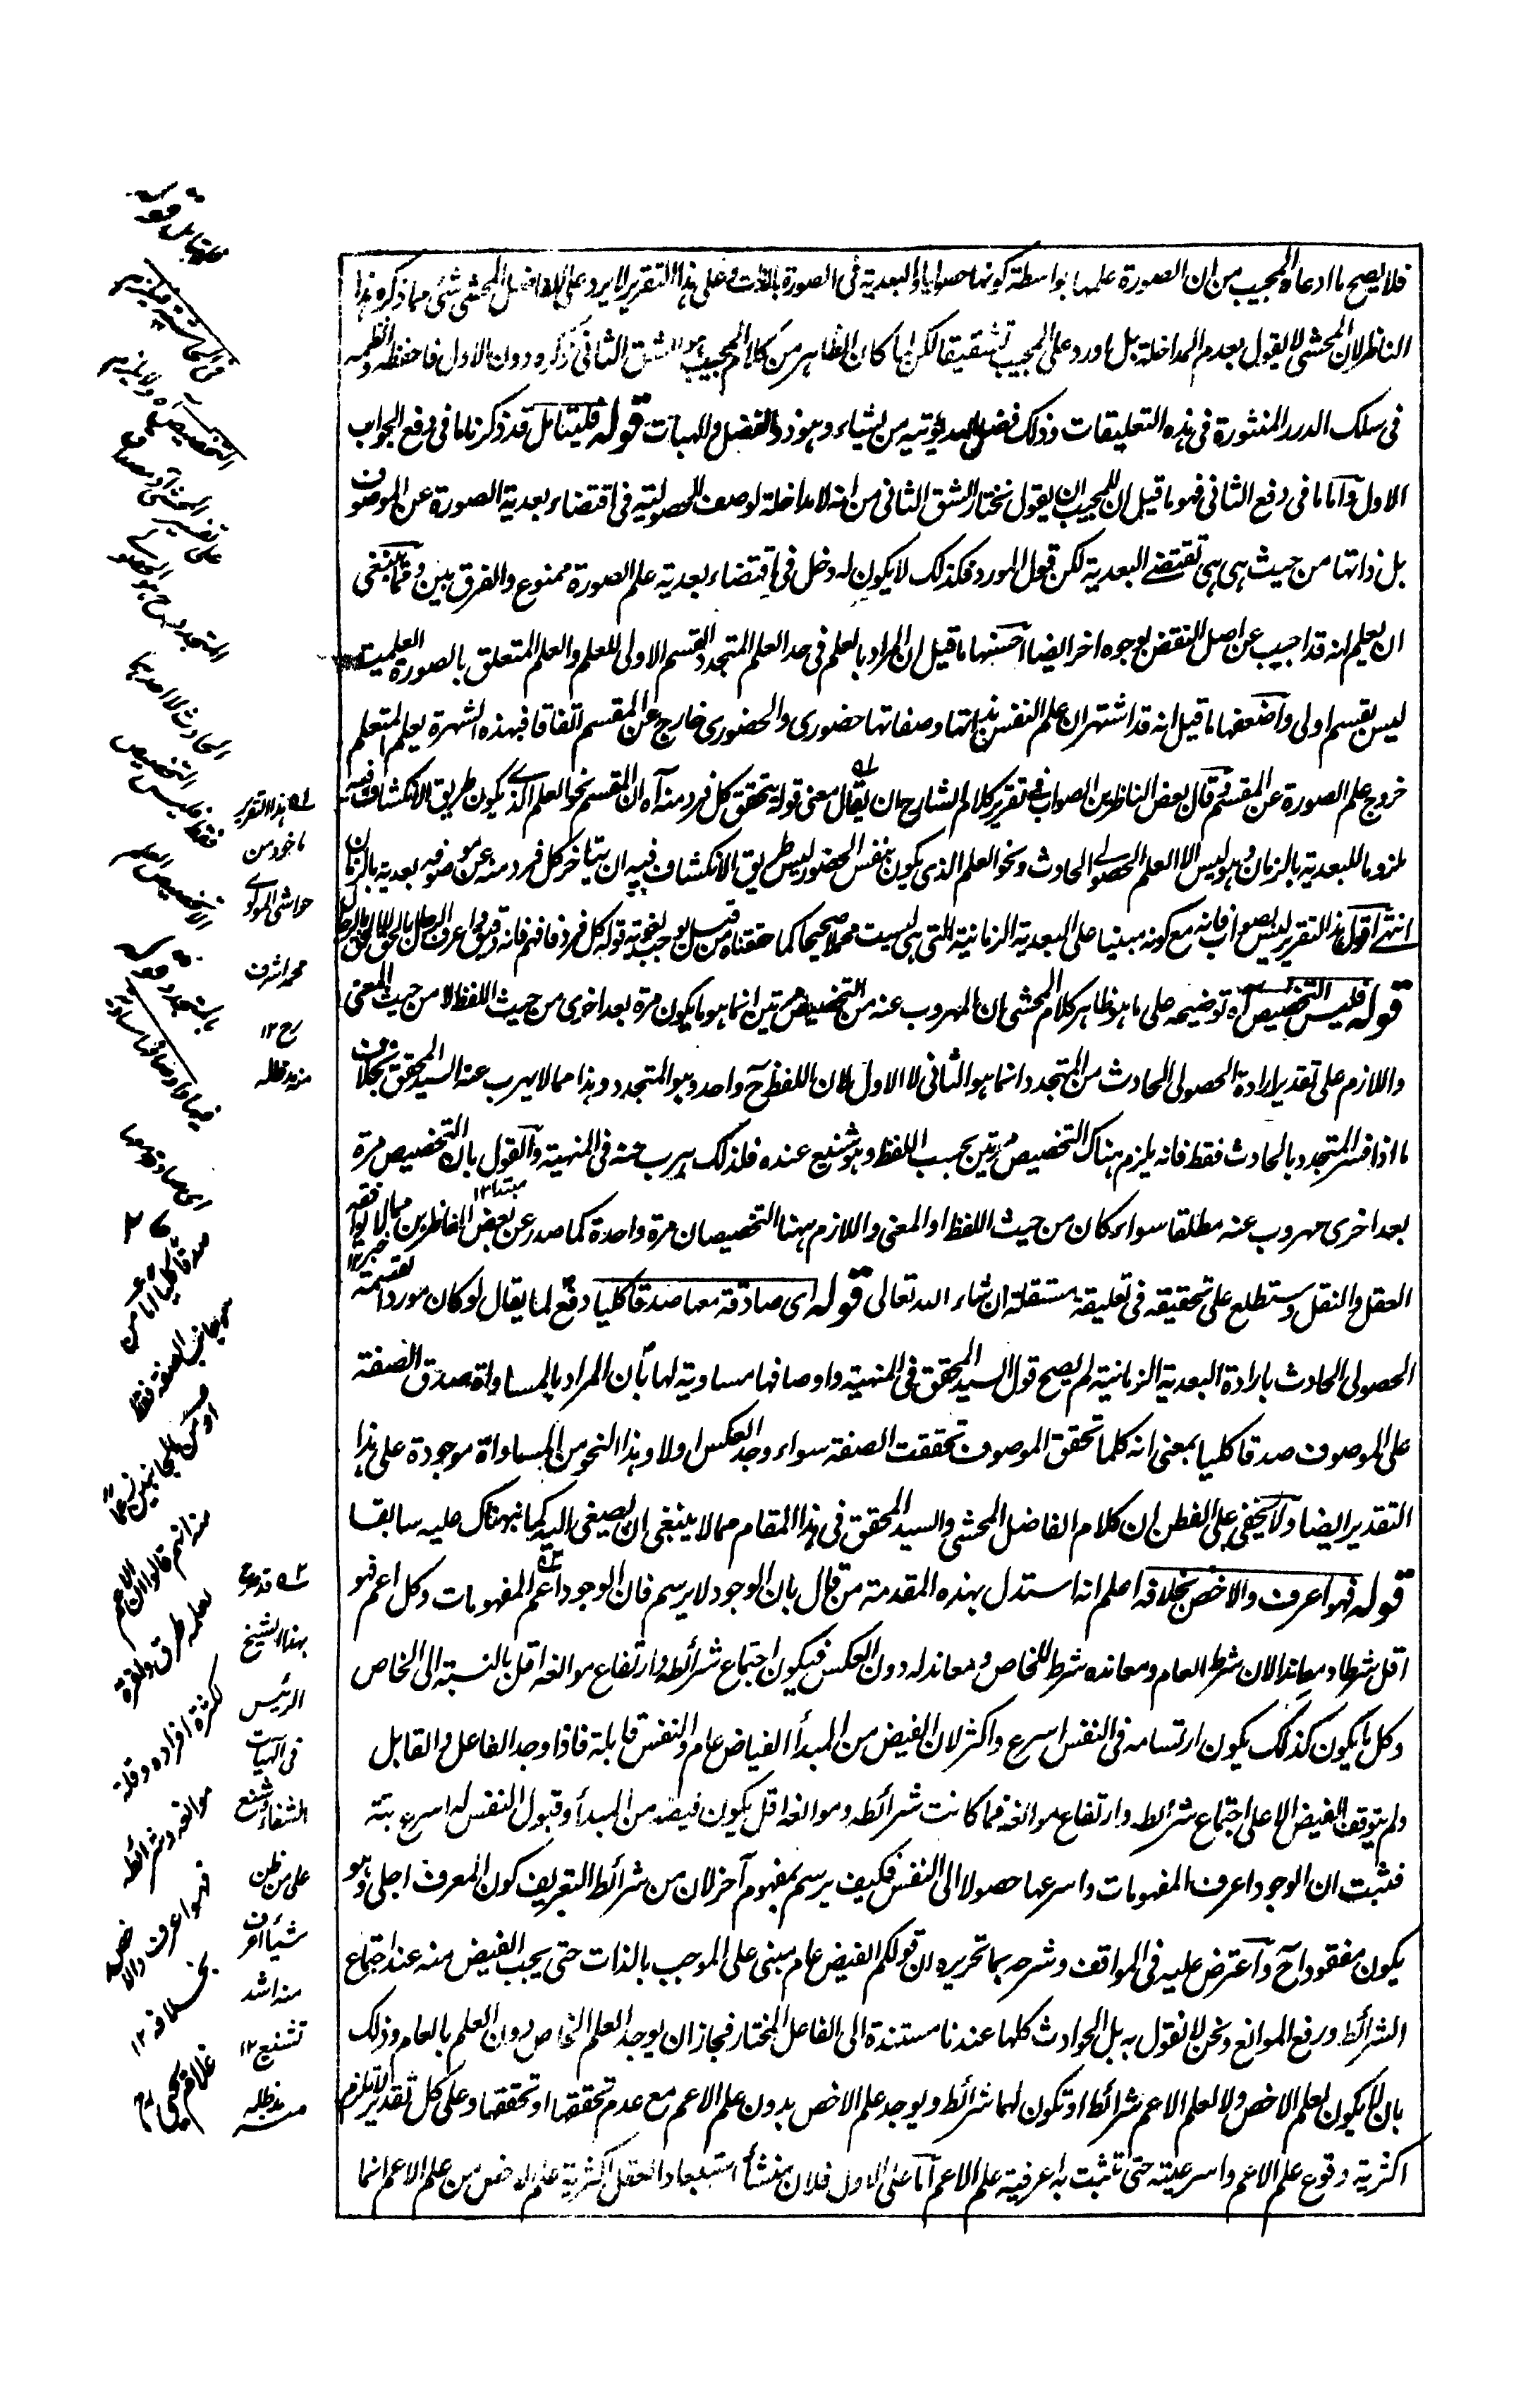 فلا يصح ما ادعاه المجيب من ان الصورة علمها بواسطة كونها حصوليا والبعدية فى الصورة بالذات وعلى هذا التقرير لا يرد على الفاضل المحشى شئ مما ذكره هذا
الناظر لان المحشى لا يقول بعدم المداخلة بل اورد على المجيب تشقيقا لكن لما كان الظاهر من كلام المجيب هو الشق الثانى ذكره دون الاول فاحفظه وانظمه
فى سلك الدرر المنثورة فى هذه التعليقات وذلك فضل الله يؤتيه من يشاء وهو ذو الفضل والهبات قوله فليتامل قد ذكرنا ما فى دفع الجواب
الاول وآما ما فى دفع الثانى فهو ما قيل ان للمجيب ان يقول نختار الشق الثانى من انه لا مداخلة لوصف الحصولية فى اقتضاء بعدية الصورة عن الموصوف
بل ذاتها من حيث هى هى تقتضى البعدية لكن قول المورد فكذلك لا يكون له دخل فى اقتضاء بعدية علم الصورة ممنوع والفرق بين ومما ينبغى
ان يعلم انه قد اجيب عن اصل النقض بوجوه اخر ايضا احسنها ما قيل ان المراد بالعلم فى حد العلم المتجدد القسم الاولى للعلم والعلم المتعلق بالصورة العلمية
ليس بقسم اولى واضعفها ما قيل انه قد اشتهر ان علم النفس بذاتها وصفاتها حضورى والحضورى خارج عن المقسم اتفاقا فبهذه الشهرة يعلم المتعلم
خروج علم الصورة عن المقسم وقال بعض الناظرين الصواب فى تقرير كلام الشارح ان يقال معنى قوله يتحقق كل فرد منه آه ان المقسم نحو العلم الذى يكون طريق الانكشاف فيه
ملزوما للبعدية بالزمان وهو ليس الا العلم الحصولى الحادث ونحو العلم الذى يكون بنفس الحضور ليس طريق الانكشاف فيه ان يتاخر كل فرد منه عن موصوفه بعدية بالزمان
انتهى اقول هذا التقرير ليس بصواب فانه مع كونه مبنيا على البعدية الزمانية التى هى ليست محملا صحيحا كما حققناه من قبل يوجب لغوية قوله كل فرد فافهم فانه دقيق واعرف
قوله فليس التخصيص آه توضيحه على ما هو ظاهر كلام المحشى ان المهروب عنه من التخصيص مرتين انما هو ما يكون مرة بعد اخرى من حيث اللفظ لا من حيث المعنى
واللازم على تقدير ارادة الحصولى الحادث من المتجدد انما هو الثانى لا الاول لان اللفظ ح واحد وهو المتجدد وهذا مما لا يهرب عنه السيد المحقق بخلاف
ما اذا فسر المتجدد بالحادث فقط فانه يلزم هناك التخصيص مرتين بحسب اللفظ وهو شنيع عنده فلذلك هرب عنه فى المنهية والقول بان التخصيص مرة
بعد اخرى مهروب عنه مطلقا سواء كان من حيث اللفظ او المعنى واللازم ههنا التخصيصان مرة واحدة كما صدر عن بعض الناظرين مما لا يوافقه
العقل والنقل وستطلع على تحقيقه فى تعليقة مستقلة ان شاء الله تعالى قوله اى صادقة معها صدقا كليا دفع لما يقال لو كان مورد القسمة
الحصولى الحادث بارادة البعدية الزمانية لم يصح قول السيد المحقق فى المنهية واوصافها مساوية لها بأن المراد بالمساواة صدق الصفة
على الموصوف صدقا كليا بمعنى انه كلما تحقق الموصوف تحققت الصفة سواء وجد العكس اولا وهذا النحو من المساواة موجودة على هذا
التقدير ايضا ولا يخفى على الفطن ان كلام الفاضل المحشى والسيد المحقق فى هذا المقام مما لا ينبغى ان يصغى اليه كما نبهناك عليه سابقا
قوله فهو اعرف والاخص بخلافه اعلم انه استدل بهذه المقدمة من قال بان الوجود لا يرسم فان الوجود اعم المفهومات وكل اعم فهو
اقل شرطا ومعاندا لان شرط العام ومعانده شرط للخاص ومعاند له دون العكس فيكون اجتماع شرائطه وارتفاع موانعه اقل بالنسبة الى الخاص
وكل ما يكون كذلك يكون ارتسامه فى النفس اسرع واكثر لان الفيض من المبدأ الفياض عام والنفس قابلة فاذا وجد الفاعل والقابل
ولم يتوقف الفيض الا على اجتماع شرائطه وارتفاع موانعه فما كانت شرائطه وموانعه اقل يكون فيضه من المبدأ وقبول النفس له اسرع بتة
فثبت ان الوجود اعرف المفهومات واسرعها حصولا الى النفس فكيف يرسم بمفهوم آخر لان من شرائط التعريف كون المعرف اجلى وهو
يكون مفقودا ح وآعترض عليه فى المواقف وشرحه بما تحريره ان قولكم الفيض عام مبنى على الموجب بالذات حتى يجب الفيض منه عند اجتماع
الشرائط ورفع الموانع ونحن لا نقول به بل الحوادث كلها عندنا مستندة الى الفاعل المختار فجاز ان يوجد العلم الخاص دون العلم بالعام وذلك
بان لا يكون لعلم الاخص ولا لعلم الاعم شرائط او تكون لهما شرائط ويوجد علم الاخص بدون علم الاعم مع عدم تحققها او تحققها وعلى كل تقدير لا تلزم
اكثرية وقوع علم الاعم واسرعيته حتى تثبت به اعرفية علم الاعم آما على الاول فلان منشأ استبعاد العقل اكثرية علم الاخص من علم الاعم انما
هذا التقرير
ماخوذ من
حواشى المولوى
محمد اشرف
رح ١٢
مد ظله
قد صرح
بهذا الشيخ
الرئيس
فى الهيات
الشفاء وشنع
على من ظن
شيئا اعرف
منه اشد
تشنيع ١٢
منه مد ظله
صدقا كليا اما من
جانب الصفة فقط
او من الجانبين
منه انهم قالوا ان الاعم
لكثرة افراده وقلة
موانعه وشرائطه
فهو اعرف والاخص
بخلافه ١٢
غلام يحيى